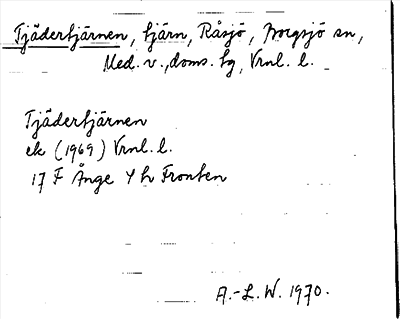 Tjädertjärnen, tjärn, Råsjö, Borgsjö sn,
Med. v., doms. hg, Vrnl. l.
Tjädertjärnen
ek (1969) Vrnl. l.
17 F Ånge 4 h Fronten
A.-L.W. 1970.